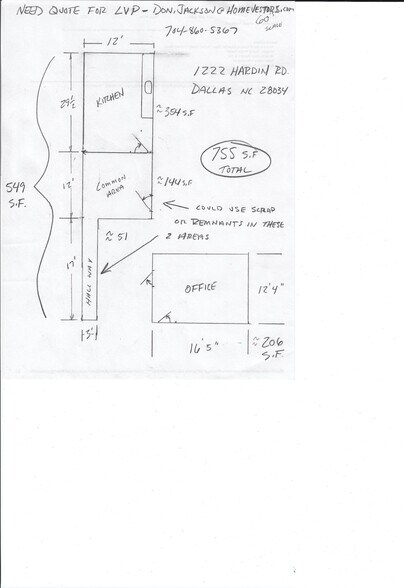 NEED QUOTE FOR LVP - DON.JACKSON@HOMEVESTORS.com
704-860-5367
SCALE
12'
1222 HARDIN RD.
DALLAS NC 28034
KITCHEN
29 1/2
≈ 354 S.F
755 S.F
TOTAL
549
S.F.
12'
COMMON
AREA
≈ 144 S.F
COULD USE SCRAP
OR REMNANTS IN THESE
2 AREAS
≈ 51
17'
HALL WAY
3'
OFFICE
12'4"
16'5"
≈ 206
S.F.